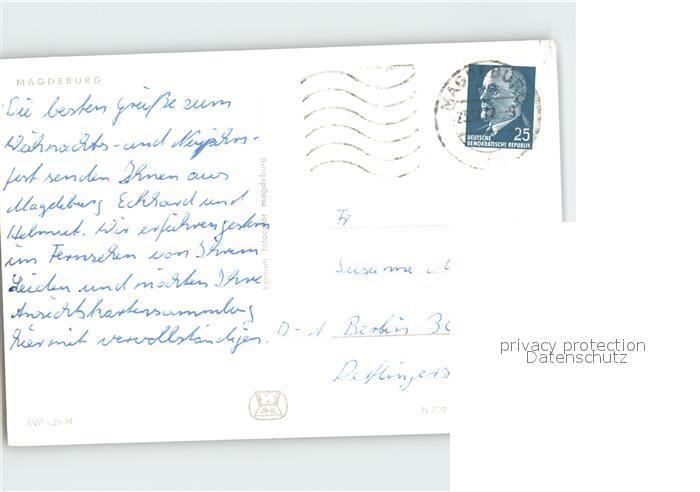 MAGDEBURG
Die besten Grüße zum
Weihnachts- und Neujahrs-
fest senden Ihnen aus
Magdeburg Eckhard und
Helmut. Wir erfuhren gestern
im Fernsehen von Ihrem
Leiden und möchten Ihre
Ansichtskartensammlung
hiermit vervollständigen.
EVP -,25 M
magdeburg
MAGDEBURG
25
DEUTSCHE
DEMOKRATISCHE REPUBLIK
Fr
Susanne
D-1 Berlin 30
N 2/72
privacy protection
Datenschutz